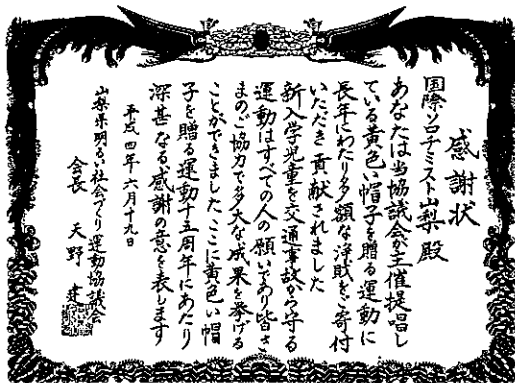 感謝状
国際ソロチミスト山梨殿
あなたは当協議会が主催提唱し
ている黄色い帽子を贈る運動に
長年にわたり多額な浄財をご寄付
いただき貢献されました
新入学児童を交通事故から守る
運動はすべての人の願いであり皆さ
まのご協力で多大な成果を挙げる
ことができましたここに黄色い帽
子を贈る運動十五周年にあたり
深甚なる感謝の意を表します
平成四年六月十九日
山梨県明るい社会づくり運動協議会
会長 天野 建